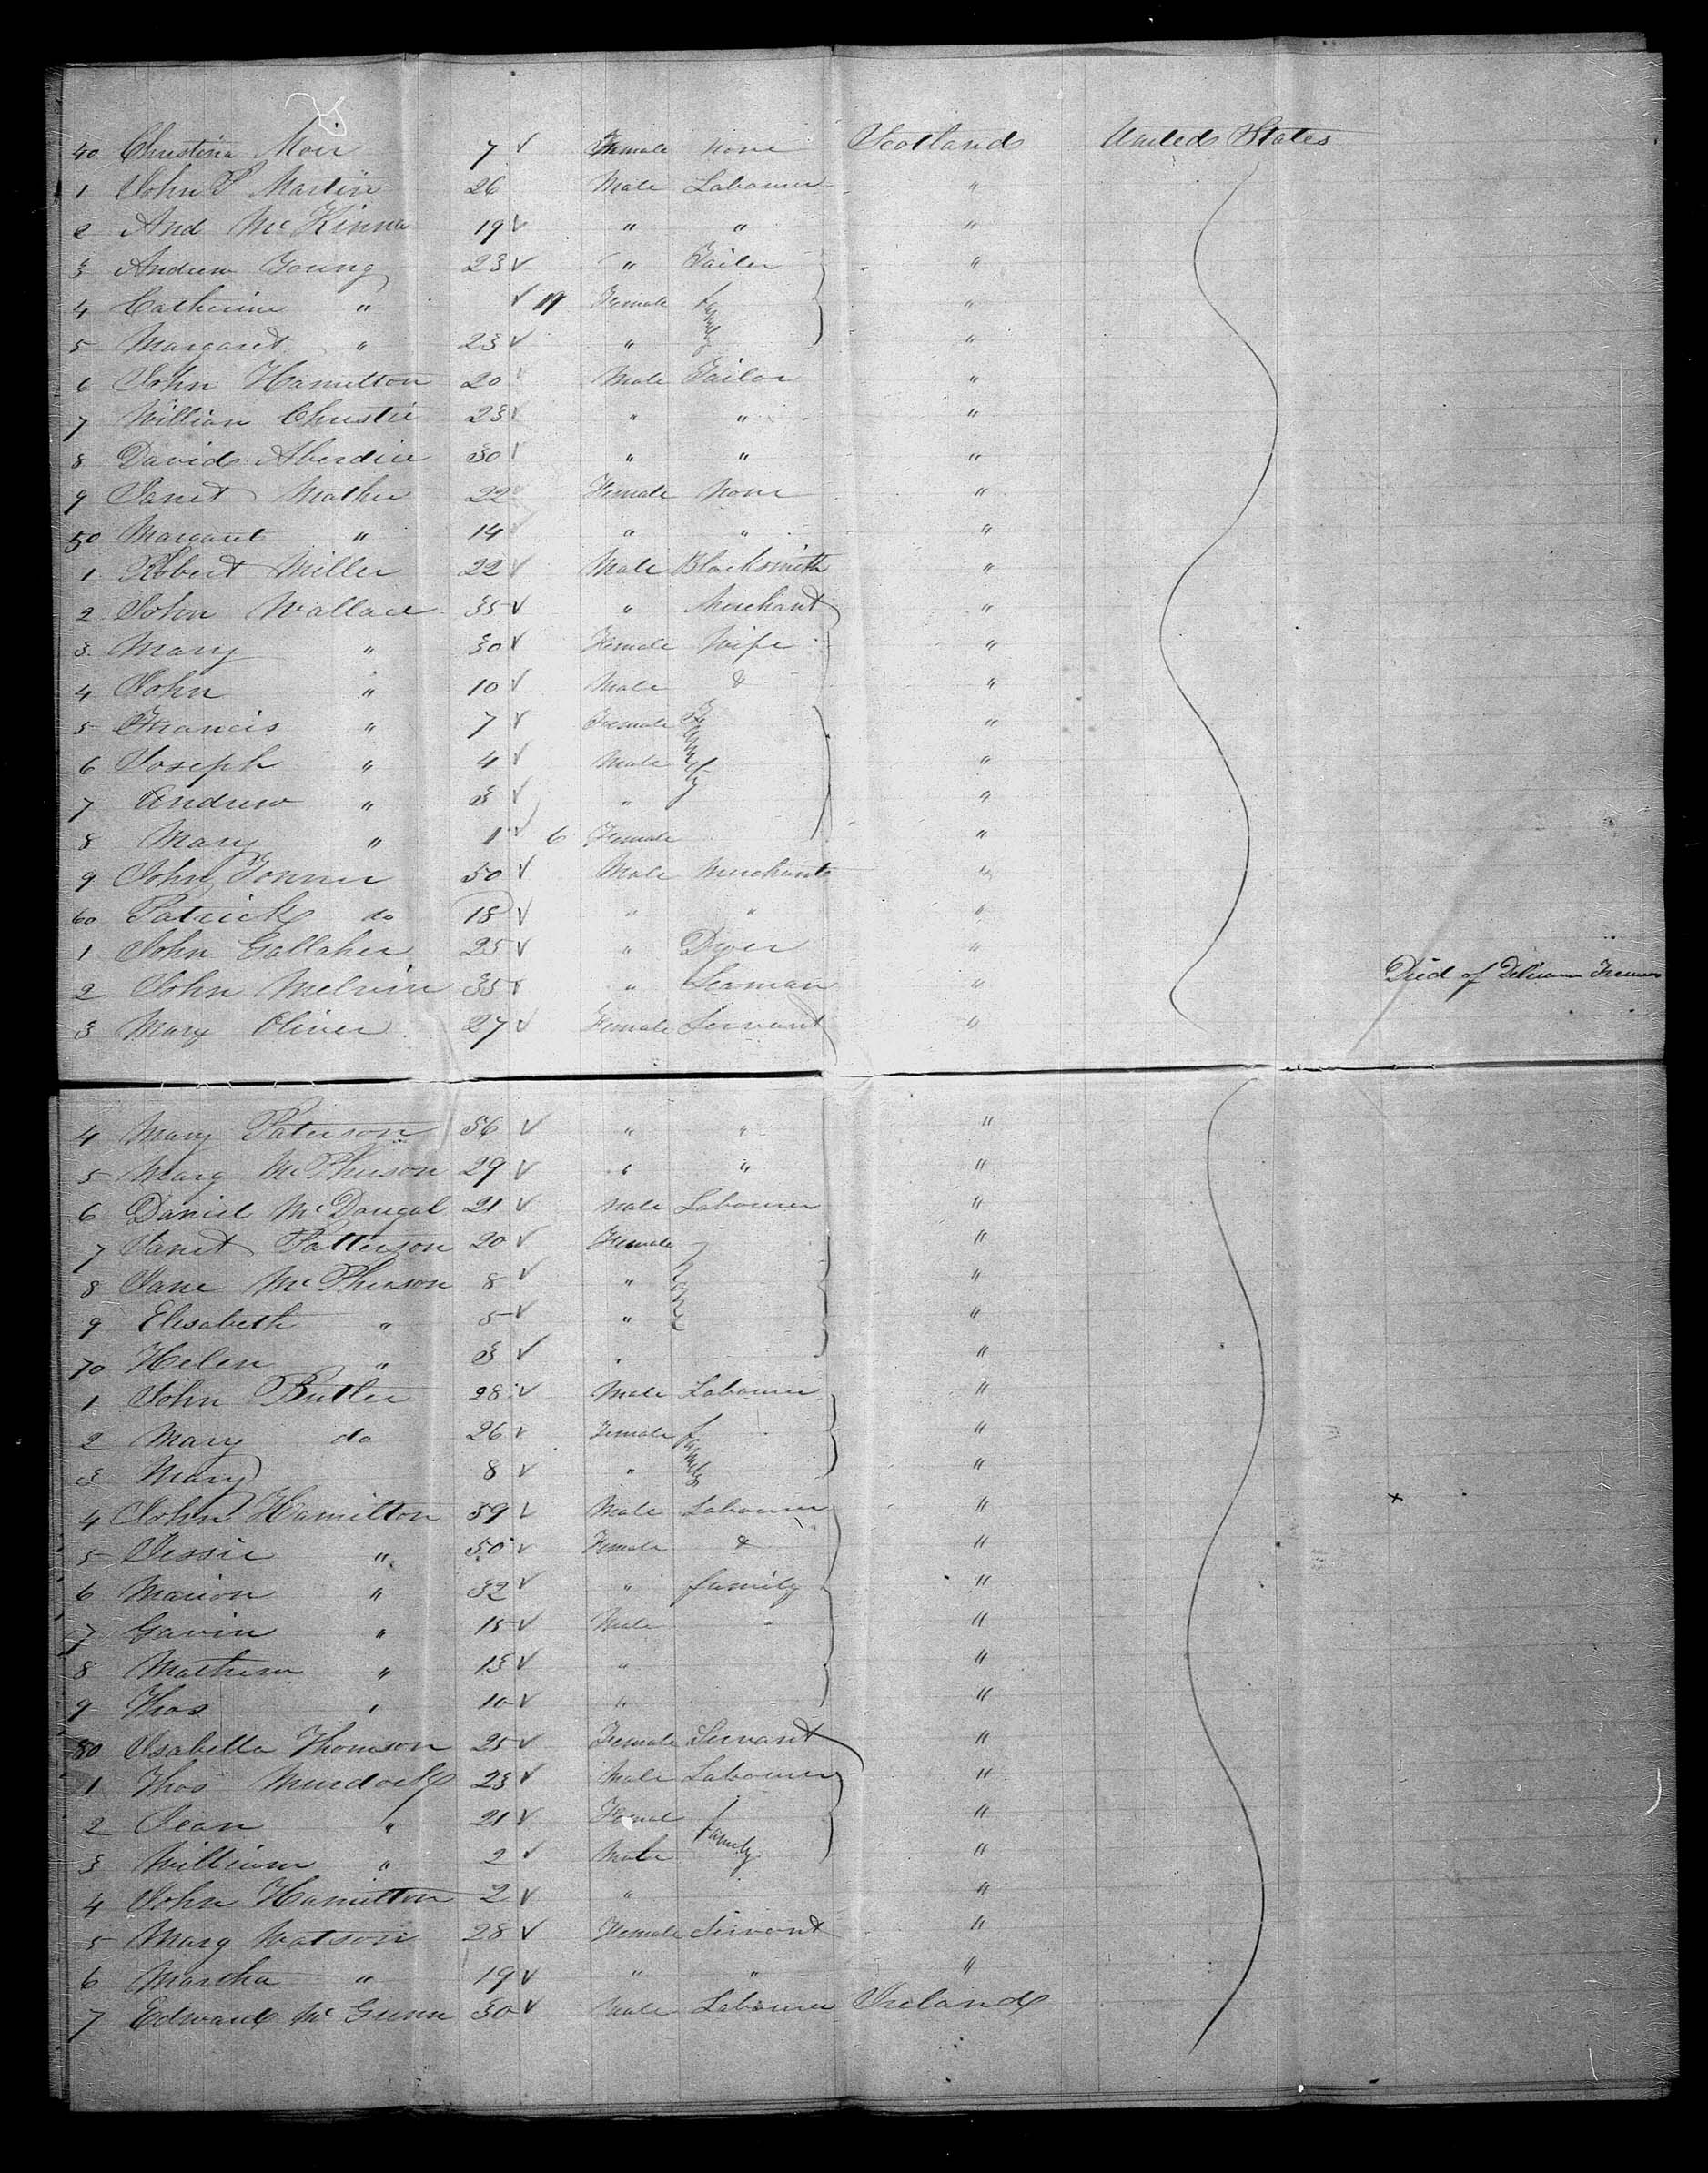 40 Christina Moir 7 Female none Scotland United States
1 John S Martin 26 Male Labourer "
2 And McKinna 19 " " "
3 Andrew Young 23 " Tailer "
4 Catherine " 19 Female family "
5 Margaret " 23 " "
6 John Hamilton 20 Male Tailor "
7 William Christie 23 " " "
8 David Aberdice 30 " " "
9 Janet Mather 22 Female None "
50 Margaret " 14 " " "
1 Robert Miller 22 Male Blacksmith "
2 John Wallace 35 " Merchant "
3 Mary " 30 Female Wife "
4 John " 10 Male & "
5 Francis " 7 Female Family "
6 Joseph " 4 Male "
7 Andrew " 3 " "
8 Mary " 1 6 Female "
9 John Tonner 50 Male Merchant "
60 Patrick do 18 " " "
1 John Gallaher 25 " Dyer "
2 John Melvin 35 " Seaman " Died of Delirium Tremens
3 Mary Oliver 27 Female Servant "
4 Mary Paterson 56 " " "
5 Mary McPherson 29 " " "
6 Daniel McDougal 21 Male Labourer "
7 Janet Patterson 20 Female None "
8 Jane McPherson 8 " "
9 Elisabeth " 5 " "
70 Helen " 3 " "
1 John Butler 28 Male Labourer "
2 Mary do 26 Female family "
3 Mary 8 " "
4 John Hamilton 59 Male Labourer " x
5 Jessie " 50 Female & "
6 Marion " 32 " family "
7 Gavin " 15 Male "
8 Mathew " 13 " "
9 Thos " 10 " "
80 Isabella Thomson 25 Female Servant "
1 Thos Murdock 23 Male Labourer "
2 Jean " 21 Femal family "
3 William " 2 Male "
4 John Hamilton 2 " "
5 Mary Watson 28 Female Servant "
6 Martha " 19 " " "
7 Edward McGunn 30 Male Labourer Ireland